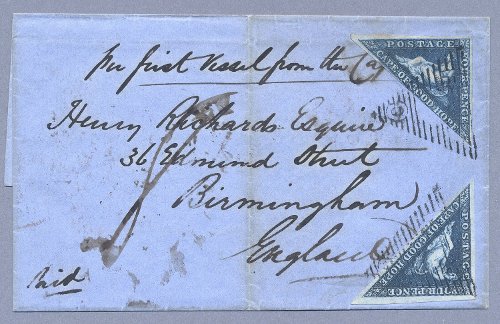 per first vessel from the Ca
Henry Richards Esquire
36 Edmund Street
Birmingham
England
Paid
POSTAGE
FOUR PENCE
CAPE OF GOOD HOPE
POSTAGE
FOUR PENCE
CAPE OF GOOD HOPE